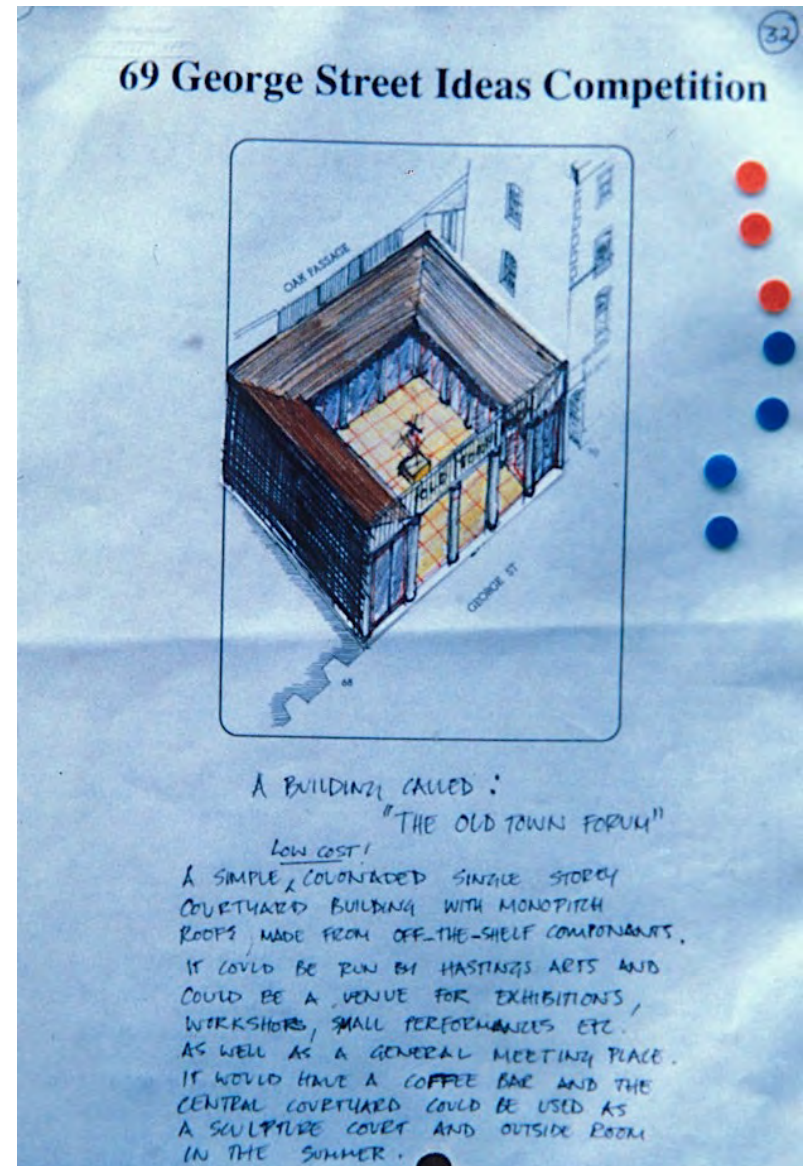 32
69 George Street Ideas Competition
OAK PASSAGE
OLD TOWN
GEORGE ST
68
A BUILDING CALLED :
"THE OLD TOWN FORUM"
LOW COST!
A SIMPLE, COLONADED SINGLE STOREY
COURTYARD BUILDING WITH MONOPITCH
ROOFS, MADE FROM OFF-THE-SHELF COMPONANTS.
IT COULD BE RUN BY HASTINGS ARTS AND
COULD BE A VENUE FOR EXHIBITIONS,
WORKSHOPS, SMALL PERFORMANCES ETC.
AS WELL AS A GENERAL MEETING PLACE.
IT WOULD HAVE A COFFEE BAR AND THE
CENTRAL COURTYARD COULD BE USED AS
A SCULPTURE COURT AND OUTSIDE ROOM
IN THE SUMMER.